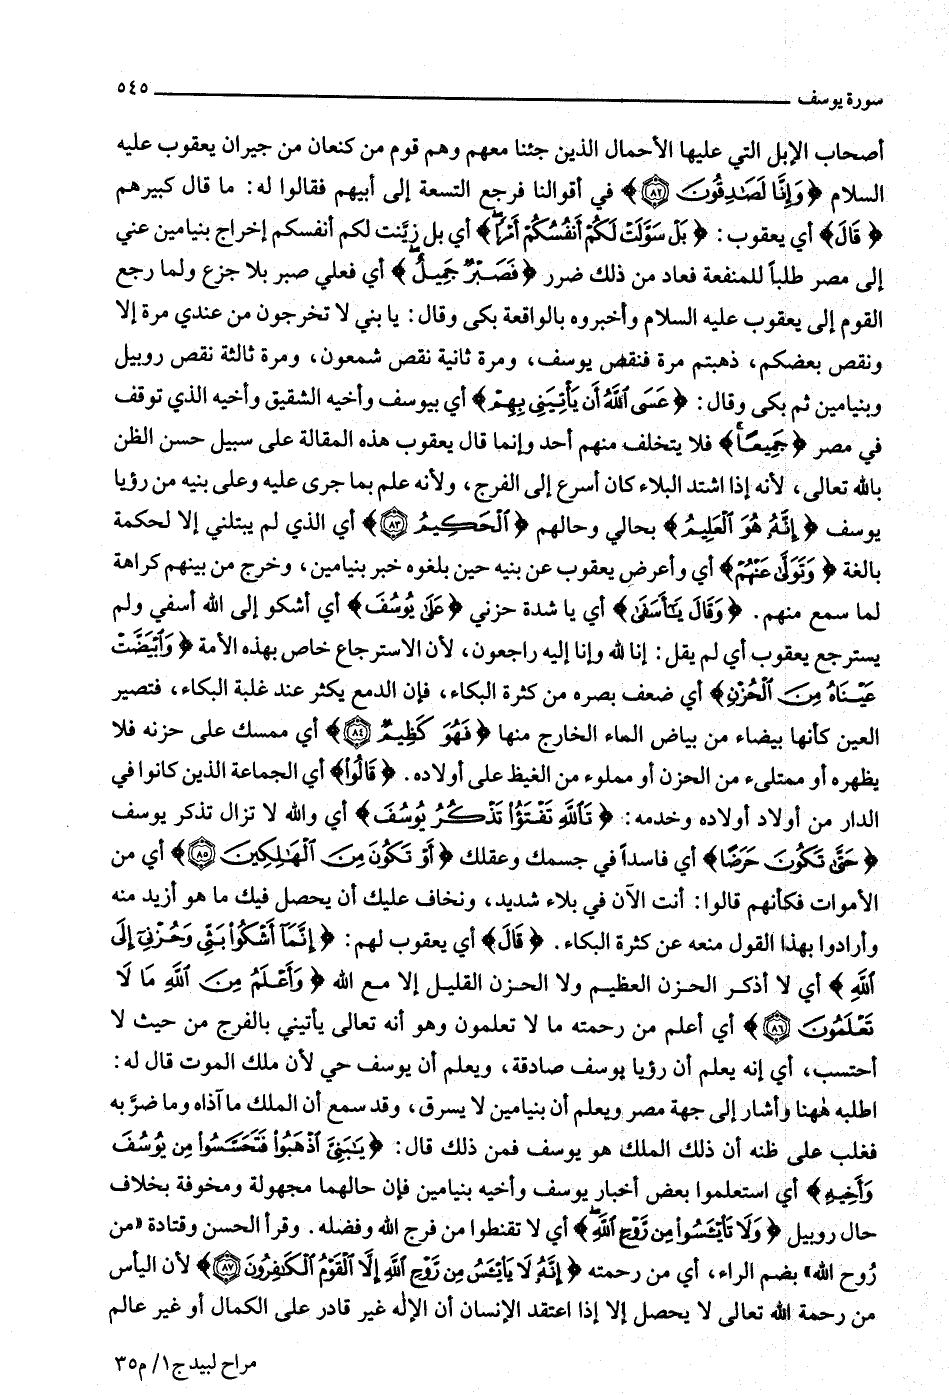 سورة يوسف ٥٤٥
أصحاب الإبل التي عليها الأحمال الذين جئنا معهم وهم قوم من كنعان من جيران يعقوب عليه
السلام ﴿وَإِنَّا لَصَٰدِقُونَ ٨٢﴾ في أقوالنا فرجع التسعة إلى أبيهم فقالوا له: ما قال كبيرهم
﴿قَالَ﴾ أي يعقوب: ﴿بَلْ سَوَّلَتْ لَكُمْ أَنفُسُكُمْ أَمْرًا﴾ أي بل زيَّنت لكم أنفسكم إخراج بنيامين عني
إلى مصر طلباً للمنفعة فعاد من ذلك ضرر ﴿فَصَبْرٌ جَمِيلٌ﴾ أي فعلي صبر بلا جزع ولما رجع
القوم إلى يعقوب عليه السلام وأخبروه بالواقعة بكى وقال: يا بني لا تخرجون من عندي مرة إلا
ونقص بعضكم، ذهبتم مرة فنقص يوسف، ومرة ثانية نقص شمعون، ومرة ثالثة نقص روبيل
وبنيامين ثم بكى وقال: ﴿عَسَى ٱللَّهُ أَن يَأْتِيَنِي بِهِمْ﴾ أي بيوسف وأخيه الشقيق وأخيه الذي توقف
في مصر ﴿جَمِيعًا﴾ فلا يتخلف منهم أحد وإنما قال يعقوب هذه المقالة على سبيل حسن الظن
بالله تعالى، لأنه إذا اشتد البلاء كان أسرع إلى الفرج، ولأنه علم بما جرى عليه وعلى بنيه من رؤيا
يوسف ﴿إِنَّهُۥ هُوَ ٱلْعَلِيمُ﴾ بحالي وحالهم ﴿ٱلْحَكِيمُ ٨٣﴾ أي الذي لم يبتلني إلا لحكمة
بالغة ﴿وَتَوَلَّىٰ عَنْهُمْ﴾ أي وأعرض يعقوب عن بنيه حين بلغوه خبر بنيامين، وخرج من بينهم كراهة
لما سمع منهم. ﴿وَقَالَ يَٰٓأَسَفَىٰ﴾ أي يا شدة حزني ﴿عَلَىٰ يُوسُفَ﴾ أي أشكو إلى الله أسفي ولم
يسترجع يعقوب أي لم يقل: إنا لله وإنا إليه راجعون، لأن الاسترجاع خاص بهذه الأمة ﴿وَٱبْيَضَّتْ
عَيْنَاهُ مِنَ ٱلْحُزْنِ﴾ أي ضعف بصره من كثرة البكاء، فإن الدمع يكثر عند غلبة البكاء، فتصير
العين كأنها بيضاء من بياض الماء الخارج منها ﴿فَهُوَ كَظِيمٌ ٨٤﴾ أي ممسك على حزنه فلا
يظهره أو ممتلىء من الحزن أو مملوء من الغيظ على أولاده. ﴿قَالُوا۟﴾ أي الجماعة الذين كانوا في
الدار من أولاد أولاده وخدمه: ﴿تَٱللَّهِ تَفْتَؤُا۟ تَذْكُرُ يُوسُفَ﴾ أي والله لا تزال تذكر يوسف
﴿حَتَّىٰ تَكُونَ حَرَضًا﴾ أي فاسداً في جسمك وعقلك ﴿أَوْ تَكُونَ مِنَ ٱلْهَٰلِكِينَ ٨٥﴾ أي من
الأموات فكأنهم قالوا: أنت الآن في بلاء شديد، ونخاف عليك أن يحصل فيك ما هو أزيد منه
وأرادوا بهذا القول منعه عن كثرة البكاء. ﴿قَالَ﴾ أي يعقوب لهم: ﴿إِنَّمَآ أَشْكُوا۟ بَثِّي وَحُزْنِيٓ إِلَى
ٱللَّهِ﴾ أي لا أذكر الحزن العظيم ولا الحزن القليل إلا مع الله ﴿وَأَعْلَمُ مِنَ ٱللَّهِ مَا لَا
تَعْلَمُونَ ٨٦﴾ أي أعلم من رحمته ما لا تعلمون وهو أنه تعالى يأتيني بالفرج من حيث لا
أحتسب، أي إنه يعلم أن رؤيا يوسف صادقة، ويعلم أن يوسف حي لأن ملك الموت قال له:
اطلبه ههنا وأشار إلى جهة مصر ويعلم أن بنيامين لا يسرق، وقد سمع أن الملك ما آذاه وما ضرَّ به
فغلب على ظنه أن ذلك الملك هو يوسف فمن ذلك قال: ﴿يَٰبَنِيَّ ٱذْهَبُوا۟ فَتَحَسَّسُوا۟ مِن يُوسُفَ
وَأَخِيهِ﴾ أي استعلموا بعض أخبار يوسف وأخيه بنيامين فإن حالهما مجهولة ومخوفة بخلاف
حال روبيل ﴿وَلَا تَا۟يْـَٔسُوا۟ مِن رَّوْحِ ٱللَّهِ﴾ أي لا تقنطوا من فرج الله وفضله. وقرأ الحسن وقتادة «من
رُوح الله» بضم الراء، أي من رحمته ﴿إِنَّهُۥ لَا يَا۟يْـَٔسُ مِن رَّوْحِ ٱللَّهِ إِلَّا ٱلْقَوْمُ ٱلْكَٰفِرُونَ ٨٧﴾ لأن اليأس
من رحمة الله تعالى لا يحصل إلا إذا اعتقد الإنسان أن الإلٰه غير قادر على الكمال أو غير عالم
مراح لبيد ج١/ م٣٥